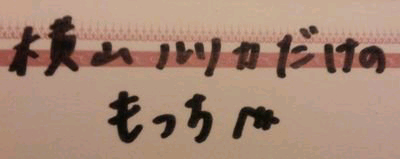 横山ルリカだけの
もっち